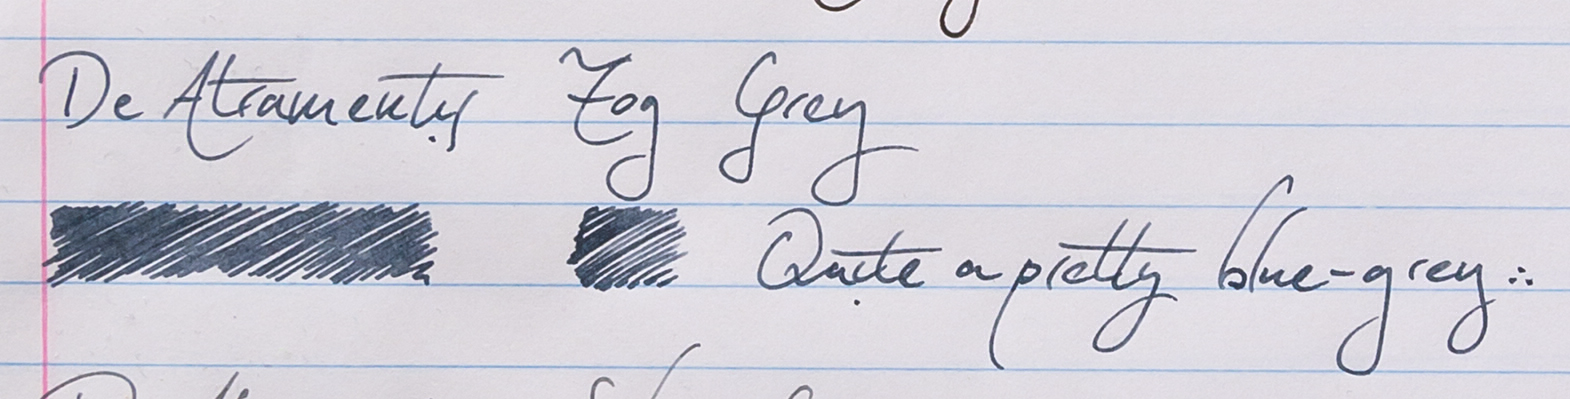 De Atramentis Fog Grey
Quite a pretty blue-grey